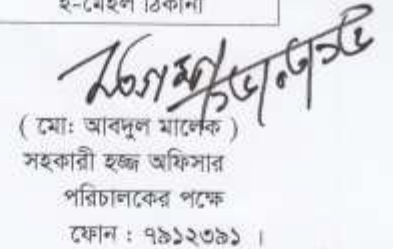 ই-মেইল ঠিকানা
( মো: আবদুল মালেক )
সহকারী হজ্জ অফিসার
পরিচালকের পক্ষে
ফোন : ৭৯১২৩৯১ ।